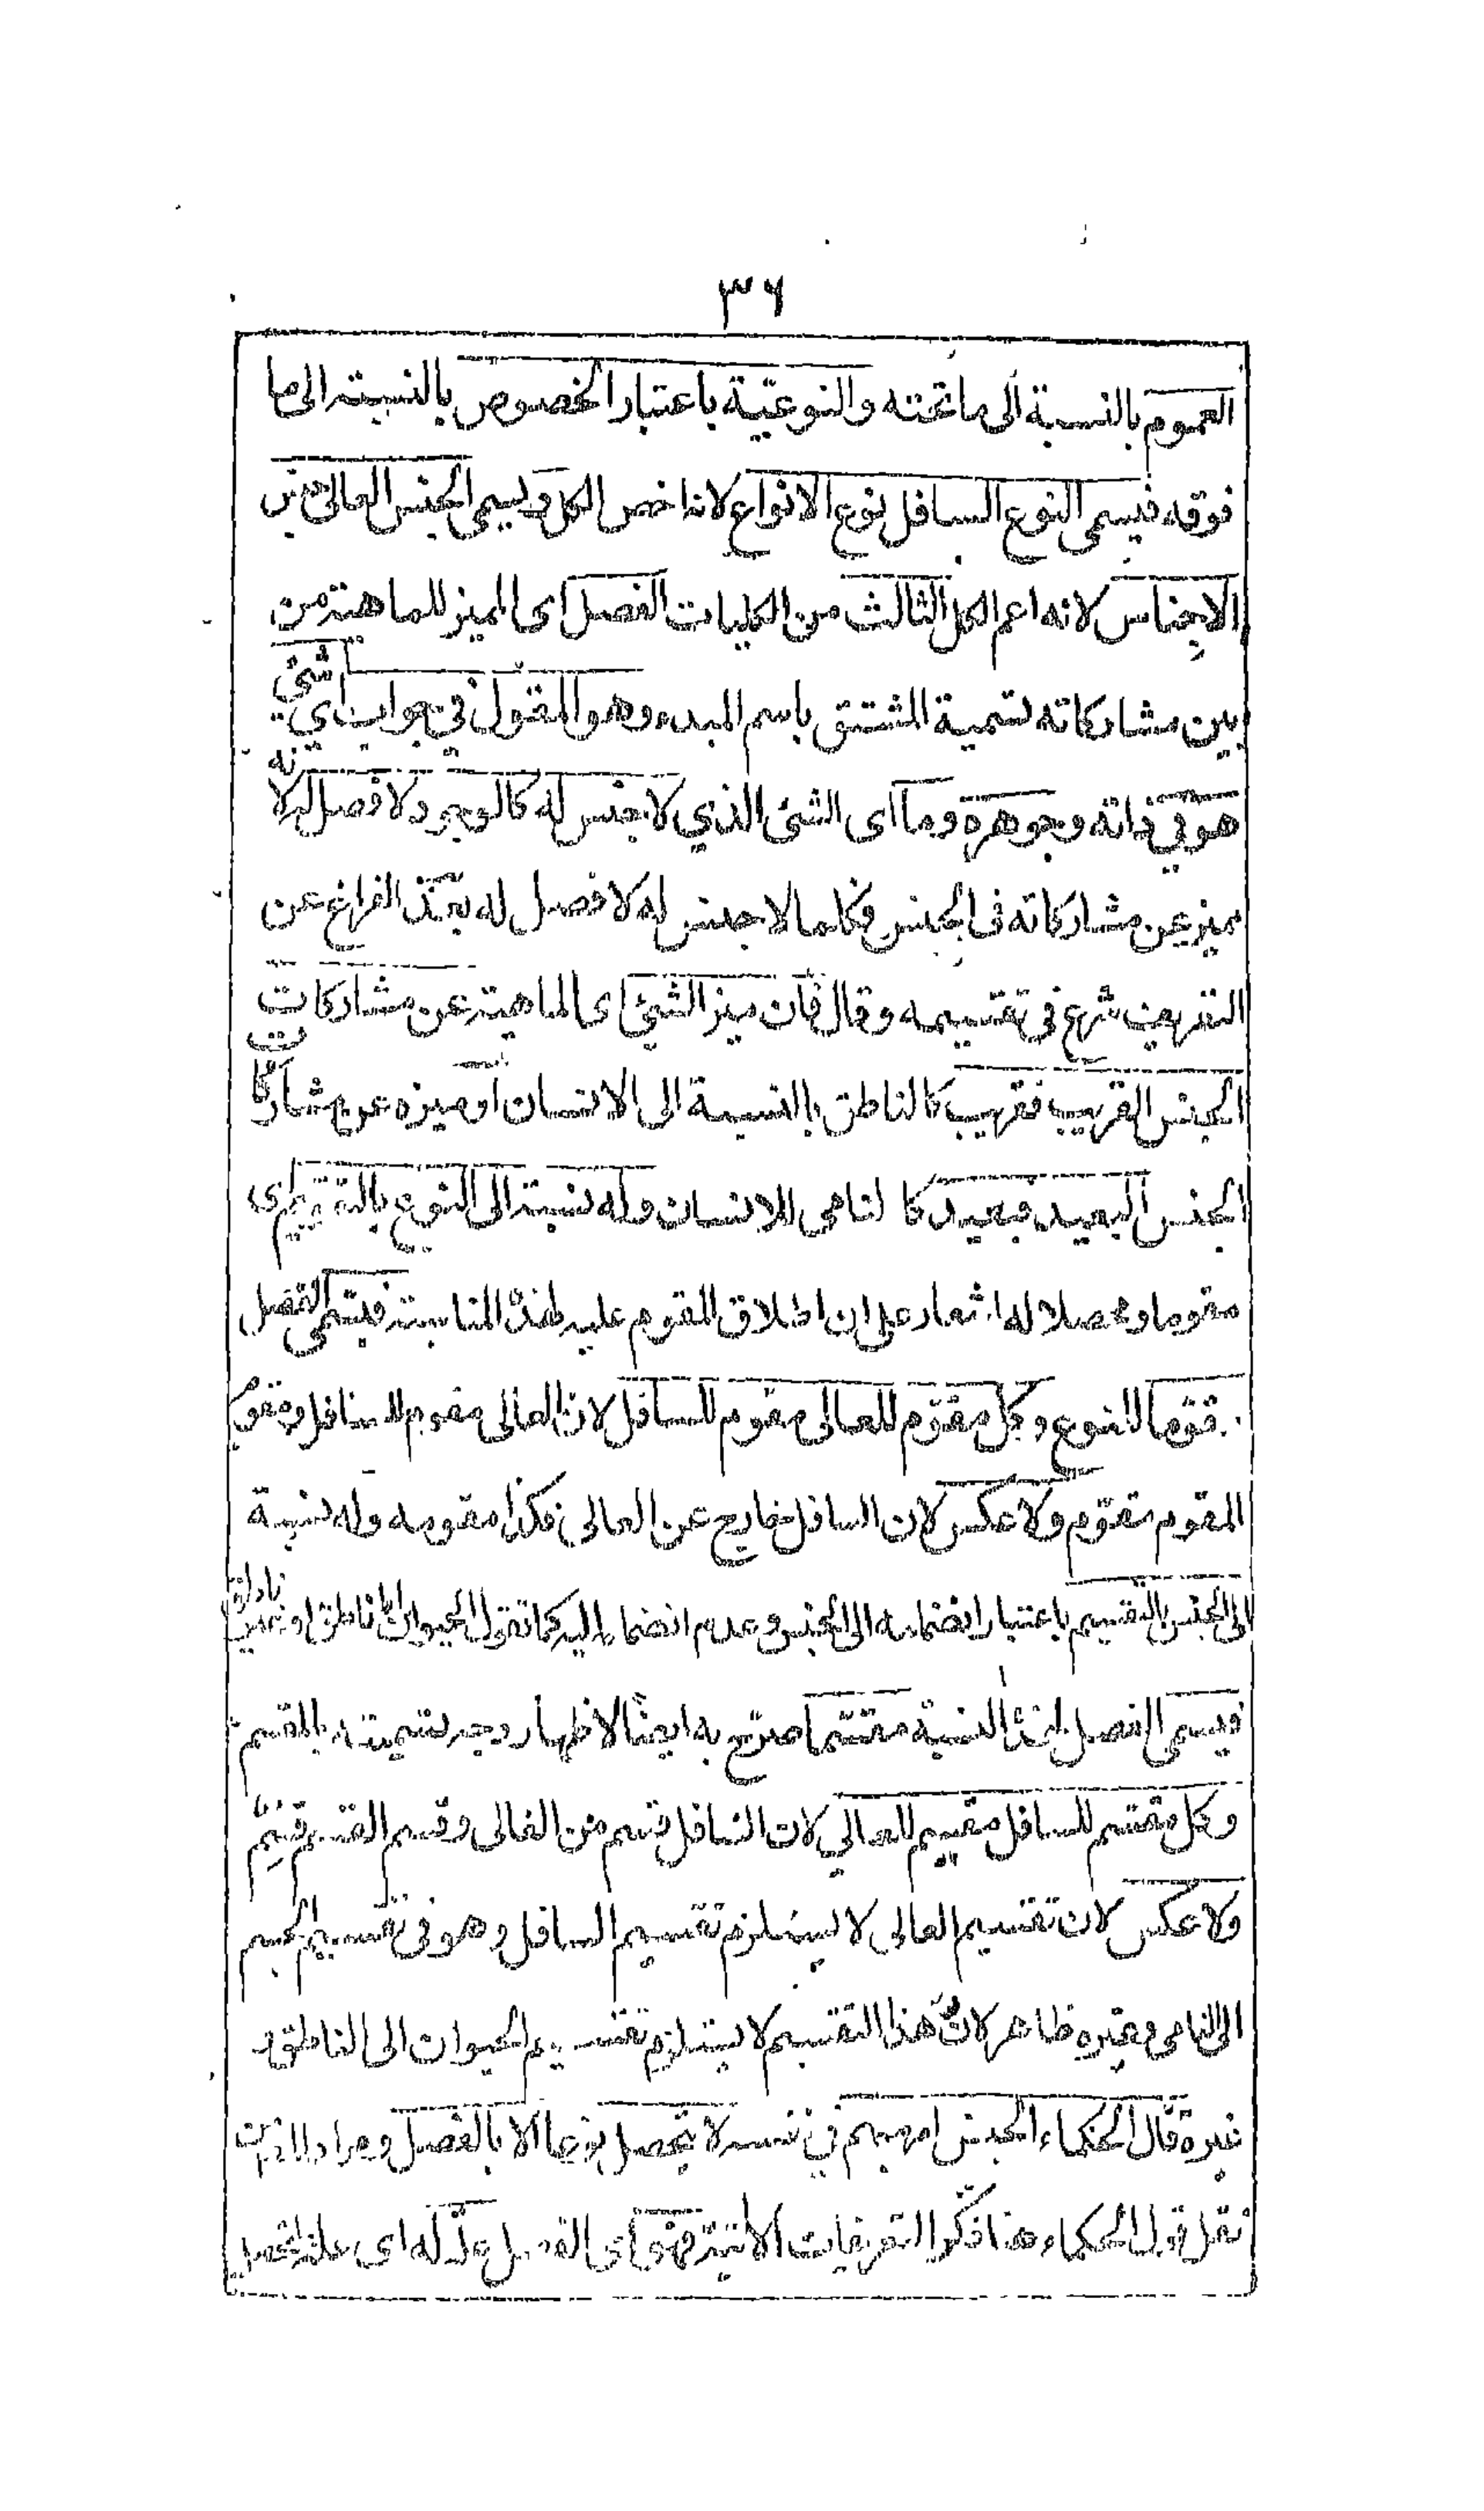 ٣٦
العموم بالنسبة الى ما تحته والنوعيّة باعتبار الخصوص بالنسبة الى ما
فوقه فيسمى النوع السافل نوع الانواع لانه اخص الكل ويسمى الجنس العالى جنس
الاجناس لانه اعم الكل الثالث من الكليات الفصل اى المميز للماهية من
بين مشاركاته تسمية المشتق باسم المبدء وهو المقول في جواب اي شئ
هو في ذاته وجوهره وما اى الشئ الذي لا جنس له كالوجود لا فصل له لانه
يميز عن مشاركاته فى الجنس فكلما لا جنس له لا فصل له بعد الفراغ عن
التعريف شرع فى تقسيمه وقال فان ميز الشئ اى الماهية عن مشاركات
الجنس القريب فقريب كالناطق باالنسبة الى الانسان او ميزه عن مشاركات
الجنس البعيد فبعيد كا لنامى للانسان وله نسبة الى النوع بالتقويم اى
مقوما ومحصلا له اشعار على ان اطلاق المقوم عليه لهذه المناسبة فيسمى الفصل
مقوّما للنوع وكل مقوّم للعالى مقوم للسافل لان العالى مقوم للسافل ومقوم
المقوم مقوّم ولا عكس لان السافل خارج عن العالى فكذا مقومه وله نسبة
الى الجنس بالتقسيم باعتبار انضمامه الى الجنس وعدم انضمامه اليه كما تقول الحيوان اما ناطق او غير ناطق
فيسمى الفصل لهذه النسبة مقسّما صرّح به ايضًا لاظهار وجه تسميته بالمقسم
وكل مقسم للسافل مقسم للعالي لان السافل قسم من العالى وقسم القسم قسم
ولا عكس لان تقسيم العالى لا يستلزم تقسيم السافل وهو فى تقسيم الجسم
الى النامى وغيره ظاهر لانّ هذا التقسيم لا يستلزم تقسيم الحيوان الى الناطق و
غيره قال الحكماء الجنس امر مبهم في نفسه لا يتحصل نوعا الا بالفصل ومراد
نقل قول الحكماء هذا ذكر التعريفات الاتية فهو اى الفصل علة له اى علة لتحصل